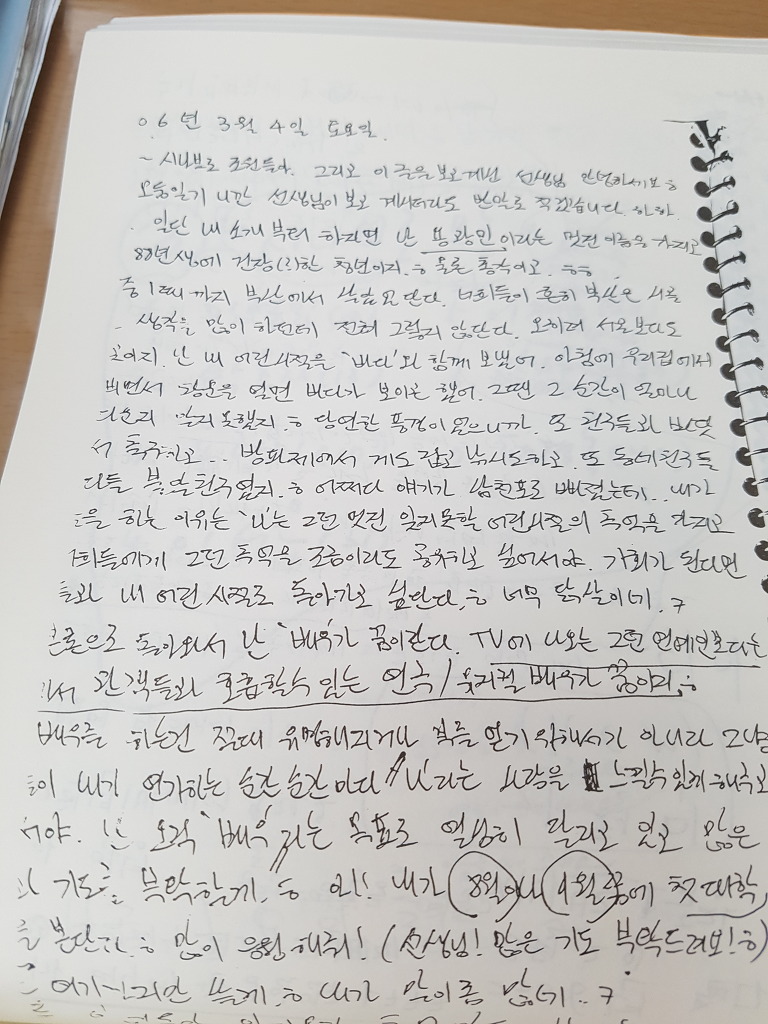 06년 3월 4일 토요일.
~ 시나브로 조원들아. 그리고 이 글을 보고계신 선생님 안녕하세요ㅎ
모둠일기 니깐 선생님이 보고 계셔더라도 반말로 적겠습니다. 하하.
일단 내 소개부터 하자면 난 용광민이라는 멋진 이름을 가지고
88년생에 건장(?)한 청년이지.ㅎ 물론 솔직하고. ㅎㅎ
중1때 까지 부산에서 살았단다. 너희들이 흔히 부산은 시골
생각을 많이 하던데 전혀 그렇지 않단다. 오히려 서울보다도
난 내 어린시절을 '바다'와 함께 보냈어. 아침에 우리집에서
면서 창문을 열면 바다가 보이곤 했어. 그땐 그 순간이 얼마나
알지 못했지.ㅎ 당연한 풍경이었으니까. 또 친구들과 바닷
서 축구하고... 방파제에서 게도 잡고 낚시도하고. 또 동네친구들
다들 불알친구였지.ㅎ 어쩌다 얘기가 삼천포로 빠졌는데.. 내가
을 하는 이유는 '나'는 그런 멋진 잊지못할 어린시절의 추억을 가지고
희들에게 그런 추억을 조금이라도 공유하고 싶어서야. 기회가 된다면
들과 내 어린 시절로 돌아가고 싶단다.ㅎ 너무 닭살이네.ㅋ
본론으로 돌아와서 난 '배우'가 꿈이란다. TV에 나오는 그런 연예인보다는
서 관객들과 호흡할수 있는 연극/뮤지컬 배우가 꿈이야.ㅎ
배우를 하는건 절대 유명해지거나 부를 얻기위해서가 아니라 그냥
들이 내가 연기하는 순간 순간 마다 '나'라는 사람을 느낄수 있게 해주고
어야. 난 오직 '배우'라는 목표로 열심히 달리고 있고 많은
과 기도를 부탁할게.ㅎ 아! 내가 8월이나 9월쯤에 첫 대학
를 본단다.ㅎ 많이 응원해줘! (선생님! 많은 기도 부탁드려요!ㅎ)
여기까지만 쓸게.ㅎ 내가 말이좀 많네..ㅋ